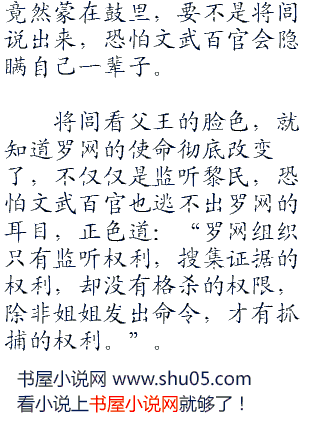 竟然蒙在鼓里，要不是将闾
说出来，恐怕文武百官会隐
瞒自己一辈子。
将闾看父王的脸色，就
知道罗网的使命彻底改变
了，不仅仅是监听黎民，恐
怕文武百官也逃不出罗网的
耳目，正色道：“罗网组织
只有监听权利，搜集证据的
权利，却没有格杀的权限，
除非姐姐发出命令，才有抓
捕的权利。”。
书屋小说网 www.shu05.com
看小说上书屋小说网就够了！